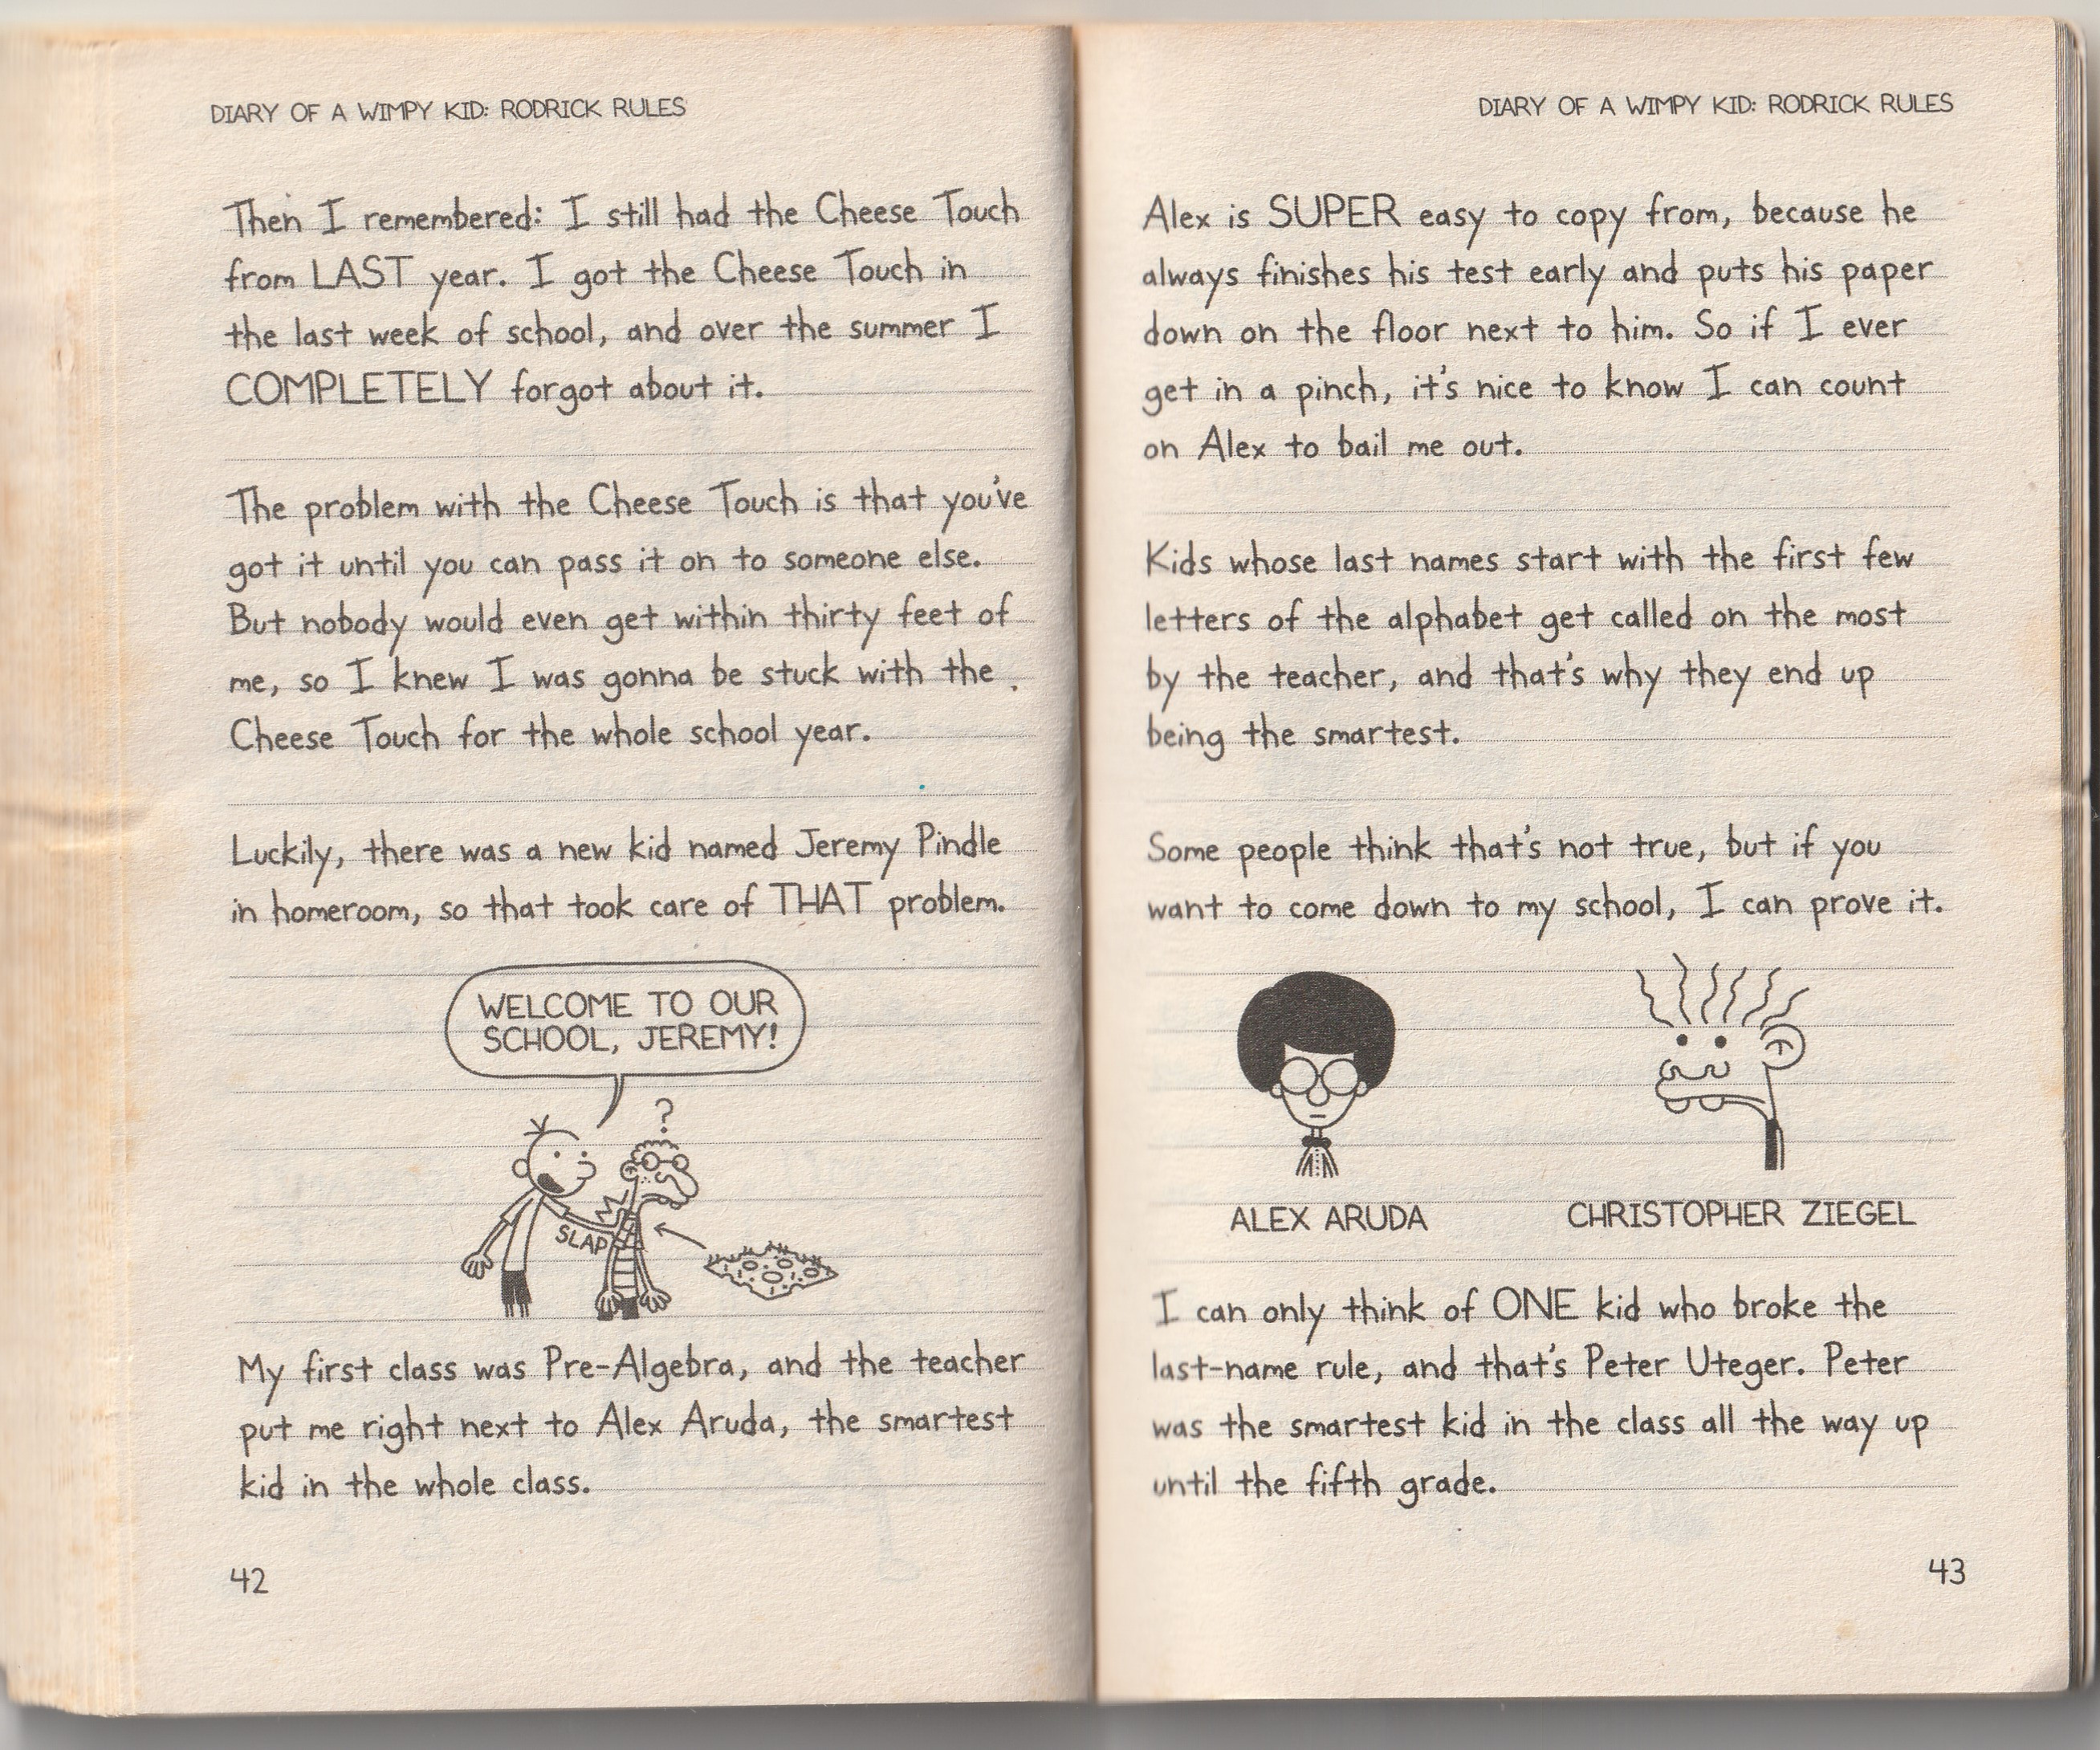 DIARY OF A WIMPY KID: RODRICK RULES
Then I remembered: I still had the Cheese Touch
from LAST year. I got the Cheese Touch in
the last week of school, and over the summer I
COMPLETELY forgot about it.
The problem with the Cheese Touch is that you've
got it until you can pass it on to someone else.
But nobody would even get within thirty feet of
me, so I knew I was gonna be stuck with the
Cheese Touch for the whole school year.
Luckily, there was a new kid named Jeremy Pindle
in homeroom, so that took care of THAT problem.
WELCOME TO OUR
SCHOOL, JEREMY!
?
SLAP
My first class was Pre-Algebra, and the teacher
put me right next to Alex Aruda, the smartest
kid in the whole class.
42
DIARY OF A WIMPY KID: RODRICK RULES
Alex is SUPER easy to copy from, because he
always finishes his test early and puts his paper
down on the floor next to him. So if I ever
get in a pinch, it's nice to know I can count
on Alex to bail me out.
Kids whose last names start with the first few
letters of the alphabet get called on the most
by the teacher, and that's why they end up
being the smartest.
Some people think that's not true, but if you
want to come down to my school, I can prove it.
ALEX ARUDA
CHRISTOPHER ZIEGEL
I can only think of ONE kid who broke the
last-name rule, and that's Peter Uteger. Peter
was the smartest kid in the class all the way up
until the fifth grade.
43